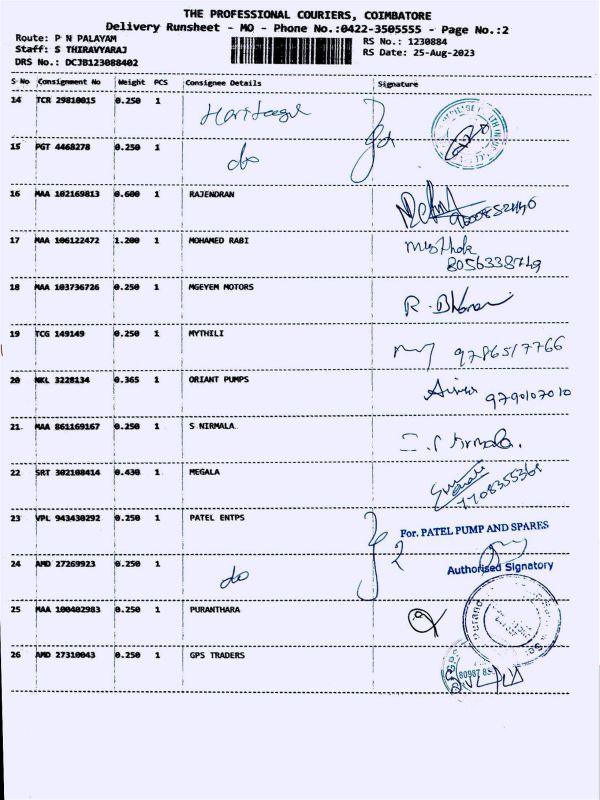 THE PROFESSIONAL COURIERS, COIMBATORE
Delivery Runsheet - MO - Phone No.:0422-3505555 - Page No.:2
Route: P N PALAYAM
Staff: S THIRAVYARAJ
DRS No.: DCJB123088402
RS No.: 1230884
RS Date: 25-Aug-2023
S No Consignment No Weight PCS Consignee Details Signature
14 TCR 29810015 0.250 1
15 PGT 4468278 0.250 1 do
16 MAA 102169813 0.600 1 RAJENDRAN
17 MAA 106122472 1.200 1 MOHAMED RABI
8056338749
18 MAA 103736726 0.250 1 MGEYEM MOTORS R.
19 TCG 149149 0.250 1 MYTHILI 9786517766
20 NKL 3228134 0.365 1 ORIANT PUMPS 9790107010
21 MAA 861169167 0.250 1 S NIRMALA
22 SRT 302108414 0.430 1 MEGALA 7708355368
23 VPL 943430292 0.250 1 PATEL ENTPS 2 For. PATEL PUMP AND SPARES
24 AMD 27269923 0.250 1 do Authorised Signatory
25 MAA 100402983 0.250 1 PURANTHARA
26 AMD 27310043 0.250 1 GPS TRADERS